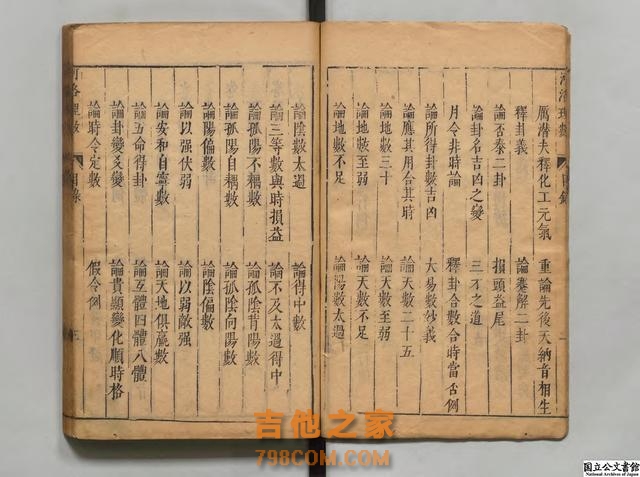 厲潛夫釋化工元氣
重論先後天納音相生
釋卦義
論蹇解二卦
論否泰二卦
損頭益尾
論卦名吉凶之變
三才之道
月令非時論
釋卦合數合時當否例
論所得卦數吉凶
大易數妙義
論應其用合其時
論天數二十五
論地數三十
論天數至弱
論地數至弱
論天數不足
論地數不足
論陽數太過
論陰數太過
論得中數
論三等數與時損益
論不及太過得中
論孤陽不耦數
論孤陰背陽數
論孤陽自耦數
論孤陰向陽數
論陽偏數
論陰偏數
論以强伏弱
論以弱敵强
論安和自寧數
論天地俱贏數
論五命得卦
論互體四體八體
論卦變爻變
論貴顯變化順時格
論時令定數
假令例
河洛理數
目錄
吉他之家
798COM.COM
国立公文書館
National Archives of Japan